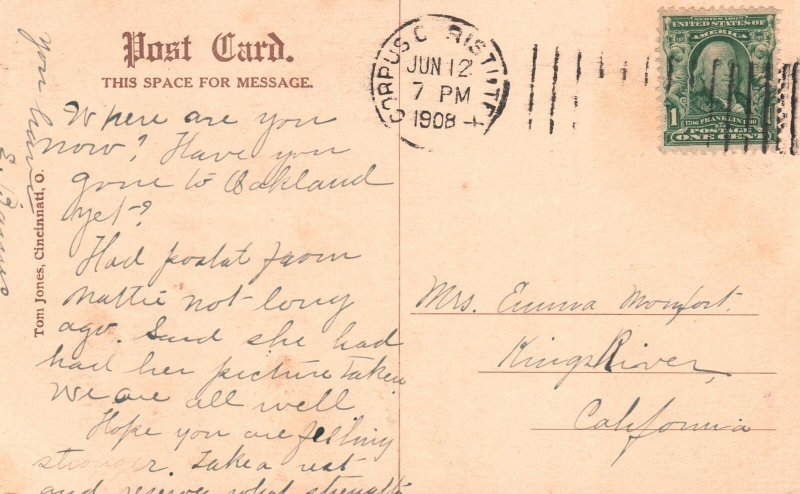 Post Card.
THIS SPACE FOR MESSAGE.
CORPUS C RISTI, TE
JUN 12
7 PM
1908
SERIES 1902
UNITED STATES OF
AMERICA
1
FRANKLIN
POSTAGE
ONE CENT
Where are you
now? Have you
gone to Oakland
yet?
Had postal from
Mattie not long
ago. Said she had
had her picture taken
We are all well
Hope you are feeling
stronger. Take a rest
and reserve what strength
you have
Tom Jones, Cincinnati, O.
Mrs. Emma Monfort.
Kings River,
California